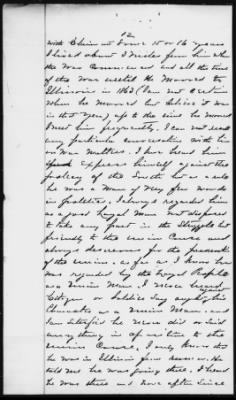 12
with Claimant some 15 or 16 years
I lived about 2 miles from him when
the War Commenced and all the time
of the War until he Moved to
Illinois in 1863 (I am not certain
when he moved but believe it was
in that year) up to the time he moved
I met him frequently. I can not recall
any particular conversation with him
on War Matters. I have heard him
express himself against the
policy of the South but as a rule
he was a man of very few words
in politics. I always regarded him
as a good Loyal man not disposed
to take any part in the Struggle but
friendly to the union Cause and
always desirous for the
of the union. as far as I know he
was regarded by the Loyal People
as a Union Man. I never heard
Citizen or Soldier Say anything against his
Character as a Union Man. and
I am satisfied he never did or said
anything in opposition to the
union Cause. I only know that
he was in Illinois from hearsay. He
told me he was going there. I heard
he was there and have after Since